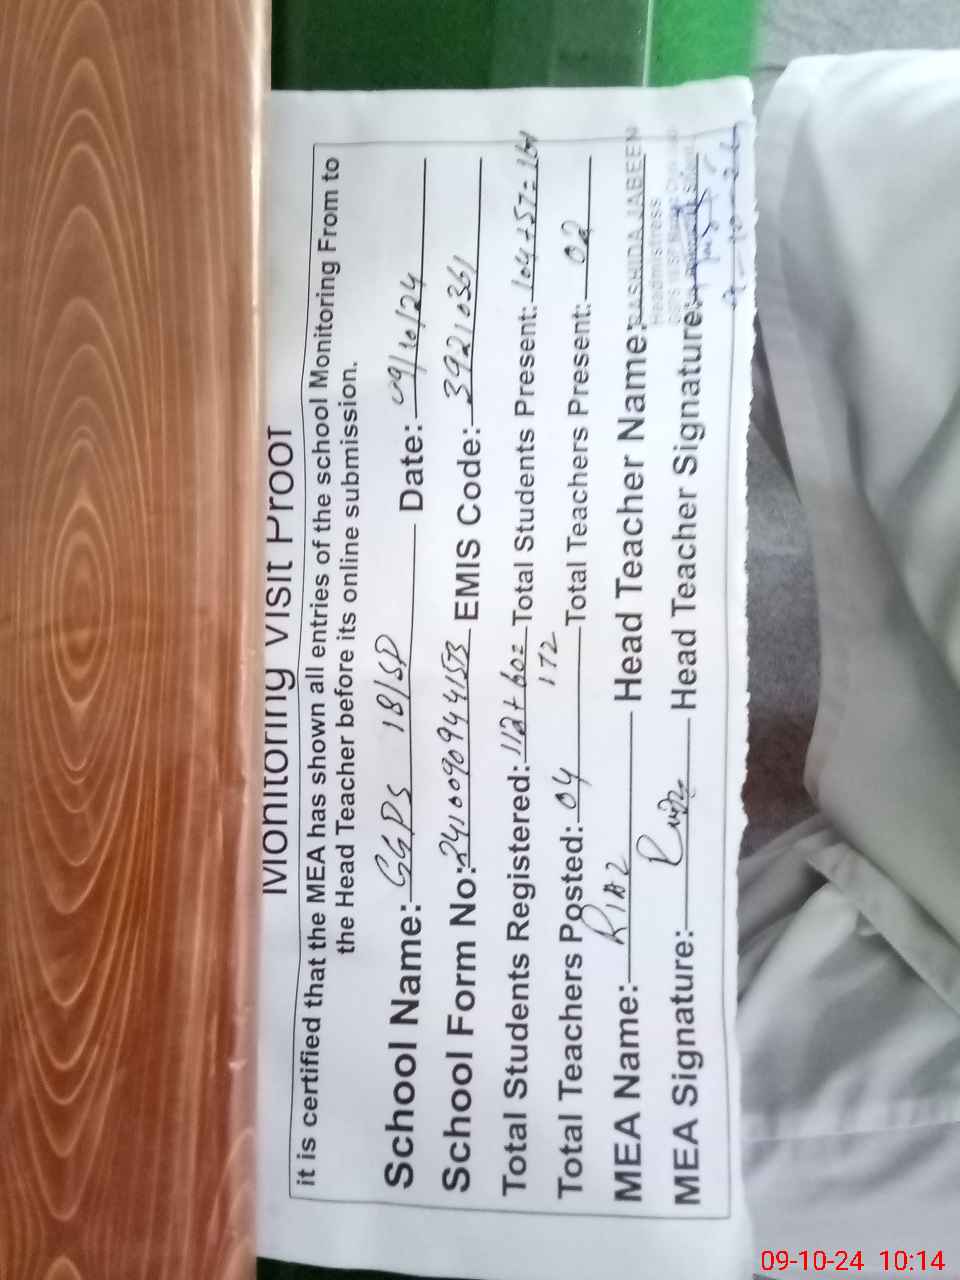 Monitoring Visit Proof
it is certified that the MEA has shown all entries of the school Monitoring From to
the Head Teacher before its online submission.
School Name: GGPS 18/SP Date: 09/10/24
School Form No: 24100909441553 EMIS Code: 39210361
Total Students Registered: 112+60= 172 Total Students Present: 104+57= 161
Total Teachers Posted: 04 Total Teachers Present: 02
MEA Name: RIAZ Head Teacher Name: RASHIDA JABEEN
Headmistress
MEA Signature: Head Teacher Signature:
9-10-24
09-10-24 10:14